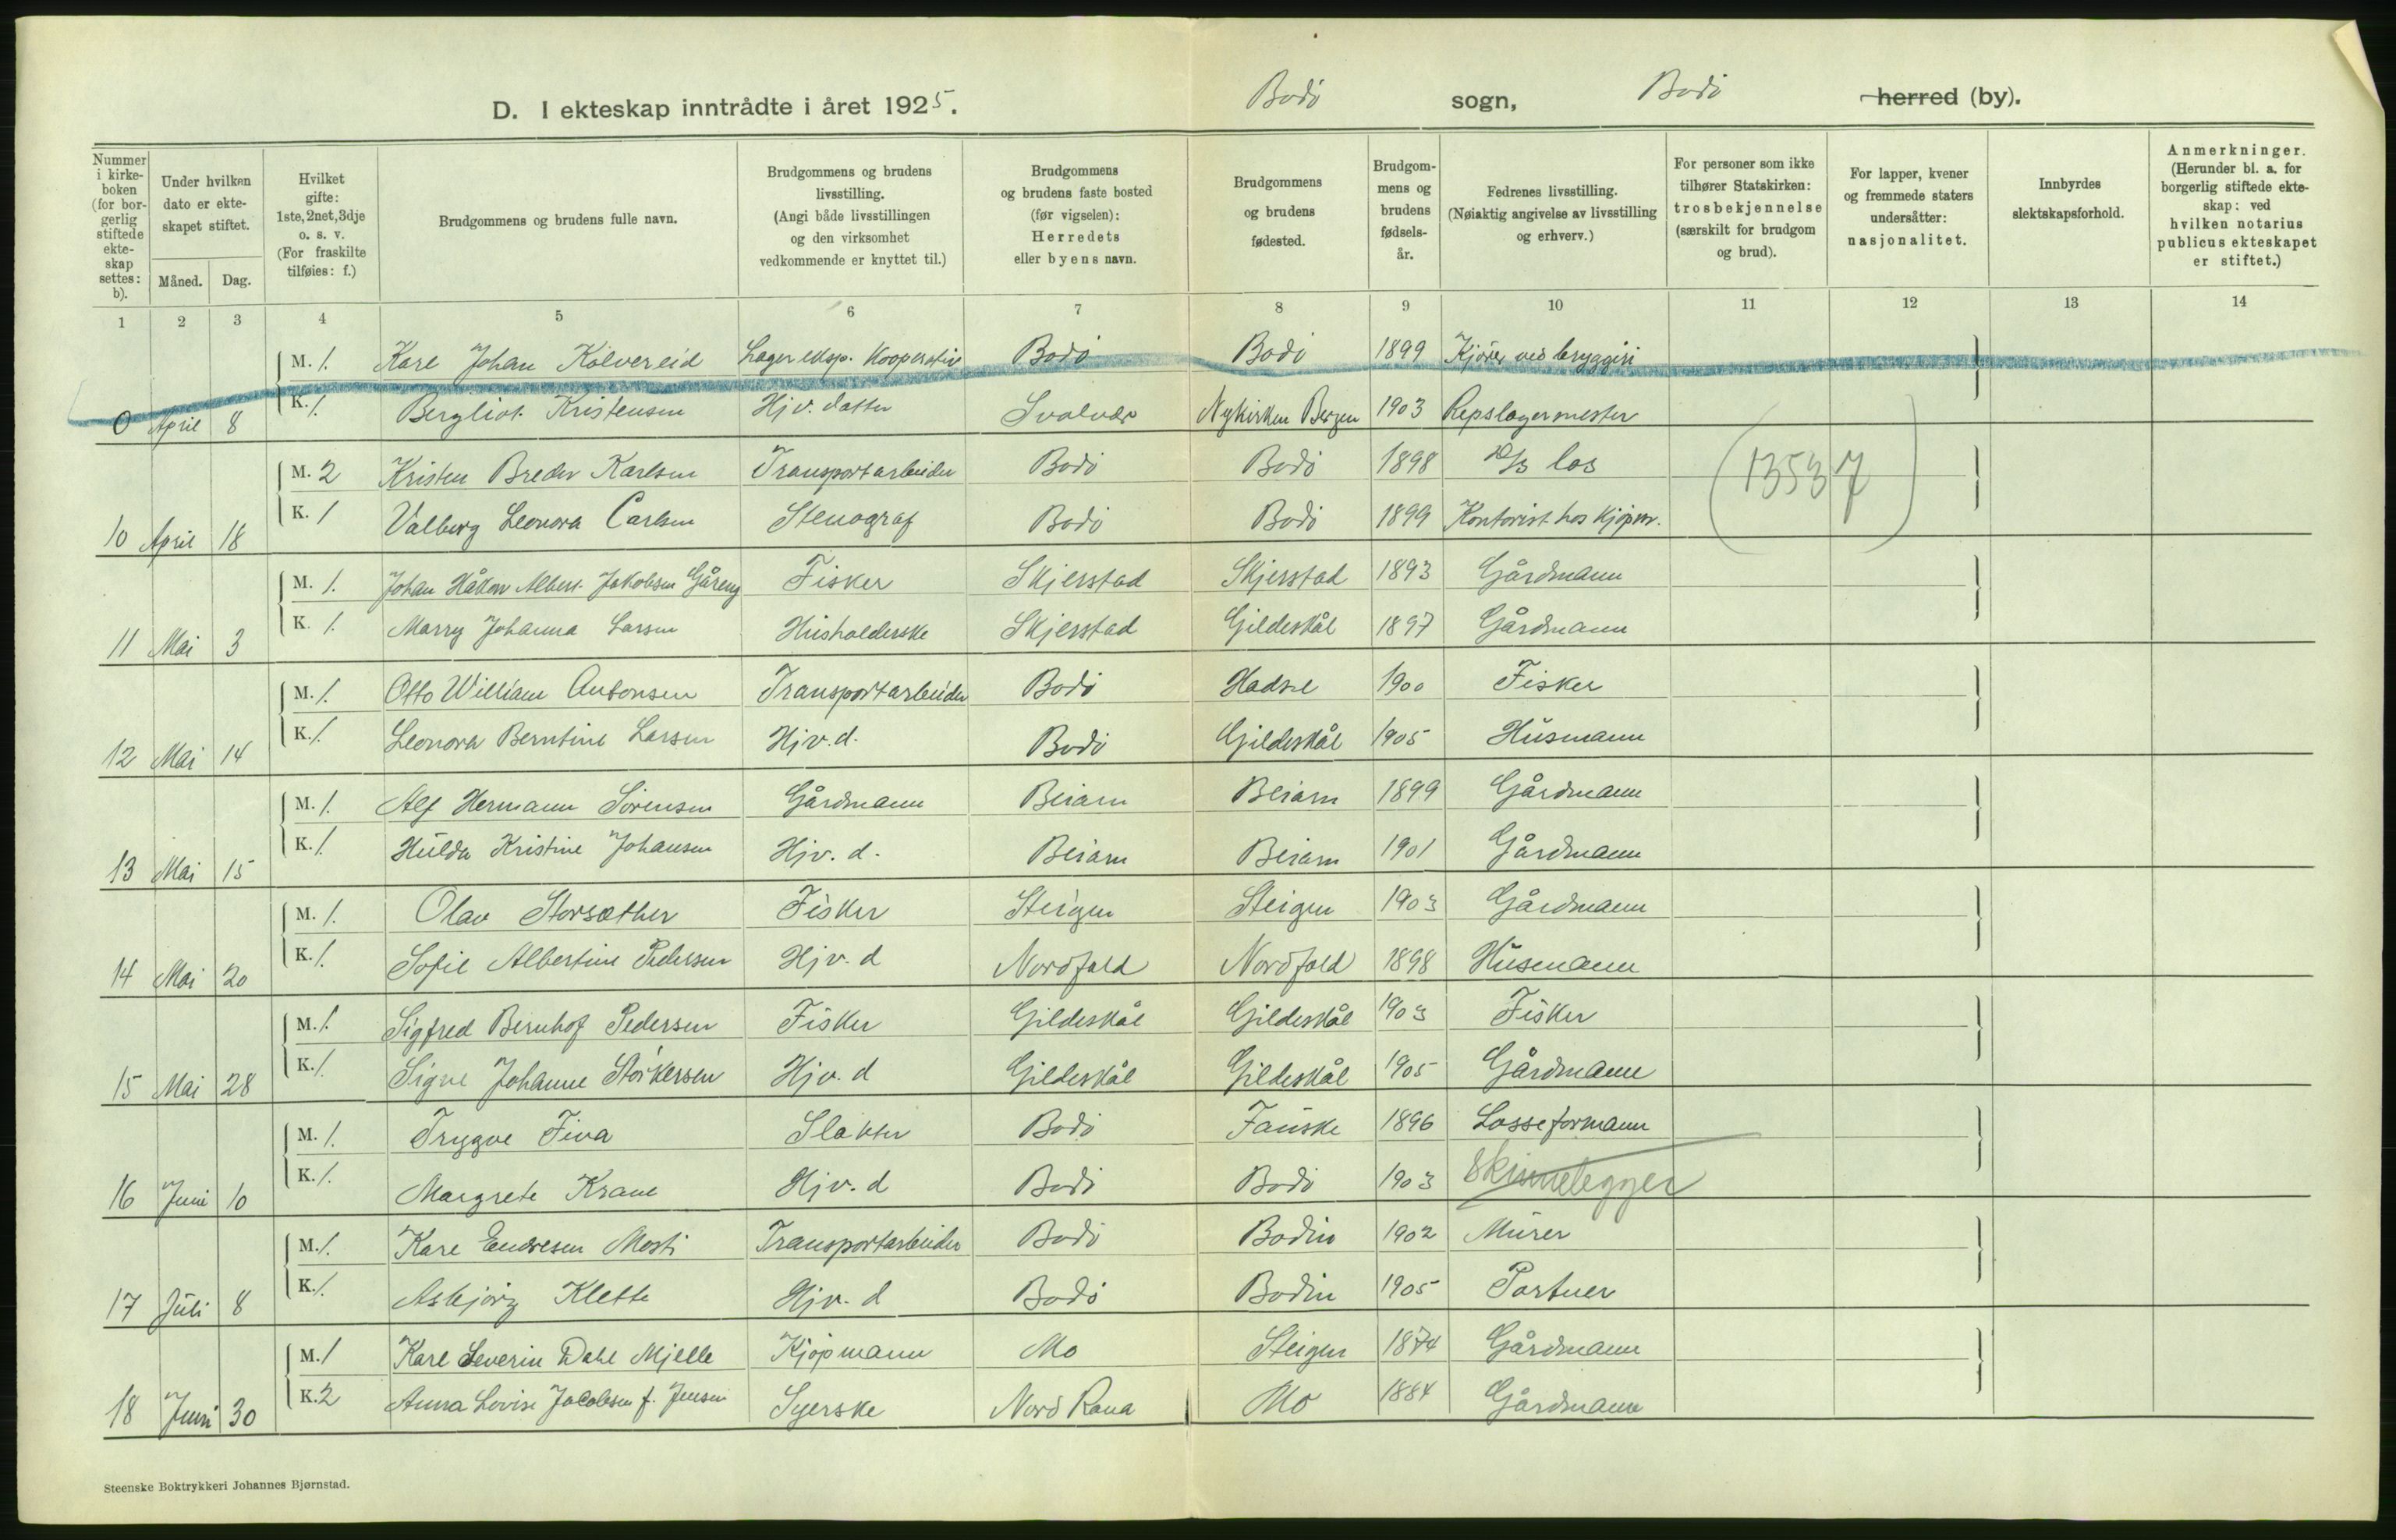 D. I ekteskap inntrådte i året 1925. Bodø sogn, Bodø herred (by).
Nummer i kirke-boken (for bor-gerlig stiftede ekte-skap settes: b).
Under hvilken dato er ekte-skapet stiftet.
Måned. Dag.
Hvilket gifte: 1ste, 2net, 3dje o. s. v. (For fraskilte tilføies: f.)
Brudgommens og brudens fulle navn.
Brudgommens og brudens livsstilling. (Angi både livsstillingen og den virksomhet vedkommende er knyttet til.)
Brudgommens og brudens faste bosted (før vigselen): Herredets eller byens navn.
Brudgommens og brudens fødested.
Brudgom-mens og brudens fødsels-år.
Fedrenes livsstilling. (Nøiaktig angivelse av livsstilling og erhverv.)
For personer som ikke tilhører Statskirken: trosbekjennelse (særskilt for brudgom og brud).
For lapper, kvener og fremmede staters undersåtter: nasjonalitet.
Innbyrdes slektskapsforhold.
Anmerkninger. (Herunder bl. a. for borgerlig stiftede ekte-skap: ved hvilken notarius publicus ekteskapet er stiftet.)
1 2 3 4 5 6 7 8 9 10 11 12 13 14
M. 1. Kare Johan Kolvereid Lagereksp. Kooperativ Bodø Bodø 1899 Kjører ved bryggeri
0 April 8 K. 1. Bergliot Kristensen Hjv. datter Svolvær Nykirken Bergen 1903 Repslagermester
M. 2 Kristen Breder Karlsen Transportarbeider Bodø Bodø 1898 D/S los (13537)
10 April 18 K. 1 Valborg Leonora Carlsen Stenograf Bodø Bodø 1899 Kontorist hos kjøpm.
M. 1. Johan Håkon Albert Jakobsen Gåreng Fisker Skjerstad Skjerstad 1893 Gårdmann
11 Mai 3 K. 1. Marry Johanna Larsen Husholderske Skjerstad Gildeskål 1897 Gårdmann
M. 1. Otto William Antonsen Transportarbeider Bodø Hadsel 1900 Fisker
12 Mai 14 K. 1. Leonora Berntine Larsen Hjv. d. Bodø Gildeskål 1905 Husmann
M. 1. Alf Hermann Sørensen Gårdmann Beiarn Beiarn 1899 Gårdmann
13 Mai 15 K. 1. Hulda Kristine Johansen Hjv. d. Beiarn Beiarn 1901 Gårdmann
M. 1. Olav Storsæther Fisker Steigen Steigen 1903 Gårdmann
14 Mai 20 K. 1. Sofie Albertine Pedersen Hjv. d Nordfold Nordfold 1898 Husmann
M. 1. Sigfred Bernhof Pedersen Fisker Gildeskål Gildeskål 1903 Fisker
15 Mai 28 K. 1. Signe Johanne Størkersen Hjv. d Gildeskål Gildeskål 1905 Gårdmann
M. 1. Trygve Fiva Slakter Bodø Fauske 1896 Losseformann
16 Juni 10 K. 1. Margrete Krane Hjv. d Bodø Bodø 1903 Skinnelegger
M. 1. Kare Endresen Mosti Transportarbeider Bodø Bodin 1902 Murer
17 Juli 8 K. 1. Asbjørg Klette Hjv. d Bodø Bodin 1905 Portner
M. 1 Karl Severin Dahl Mjelle Kjøpmann Mo Steigen 1874 Gårdmann
18 Juni 30 K. 2 Anna Lovise Jacobsen f. Jensen Syerske Nord Rana Mo 1884 Gårdmann
Steenske Boktrykkeri Johannes Bjørnstad.